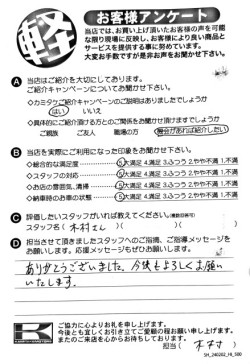 軽
お客様アンケート
当店では、お買い上げ頂いたお客様の声を可能
な限り現場に反映し、お客様により良い商品と
サービスを提供する事に努めています。
大変お手数ですが是非お声をお聞かせ下さい。
A 当店はご紹介を大切にしております。
ご紹介キャンペーンについてお聞かせ下さい。
◇カミタケご紹介キャンペーンのご説明はありましたでしょうか
はい いいえ
◇具体的にご紹介頂ける方とのご関係をお聞かせ頂けますでしょうか
ご親族 ご友人 職場の方 機会があれば紹介したい
B 当店を実際にご利用になった印象をお聞かせ下さい。
◇総合的な満足度 5大満足 4.満足 3.ふつう 2.やや不満 1.不満
◇スタッフの対応 5大満足 4.満足 3.ふつう 2.やや不満 1.不満
◇お店の雰囲気、清掃 5大満足 4.満足 3.ふつう 2.やや不満 1.不満
◇納車時のお車の状態 5大満足 4.満足 3.ふつう 2.やや不満 1.不満
C 評価したいスタッフがいれば教えてください。(複数回答可)
スタッフ名( 木村さん )
D 担当させて頂きましたスタッフへのご指摘、ご指導メッセージを
お願いします。応援メッセージもぜひお願いします。
ありがとうございました。今後もよろしくお願い
いたします。
K
ご協力に心よりお礼を申し上げます。
今後とも宜しくお引き立てご愛顧の程お願い申し上げます。
またのご来店を心からお待ちしております。
担当( 木村 )
SH_240202_HI_500